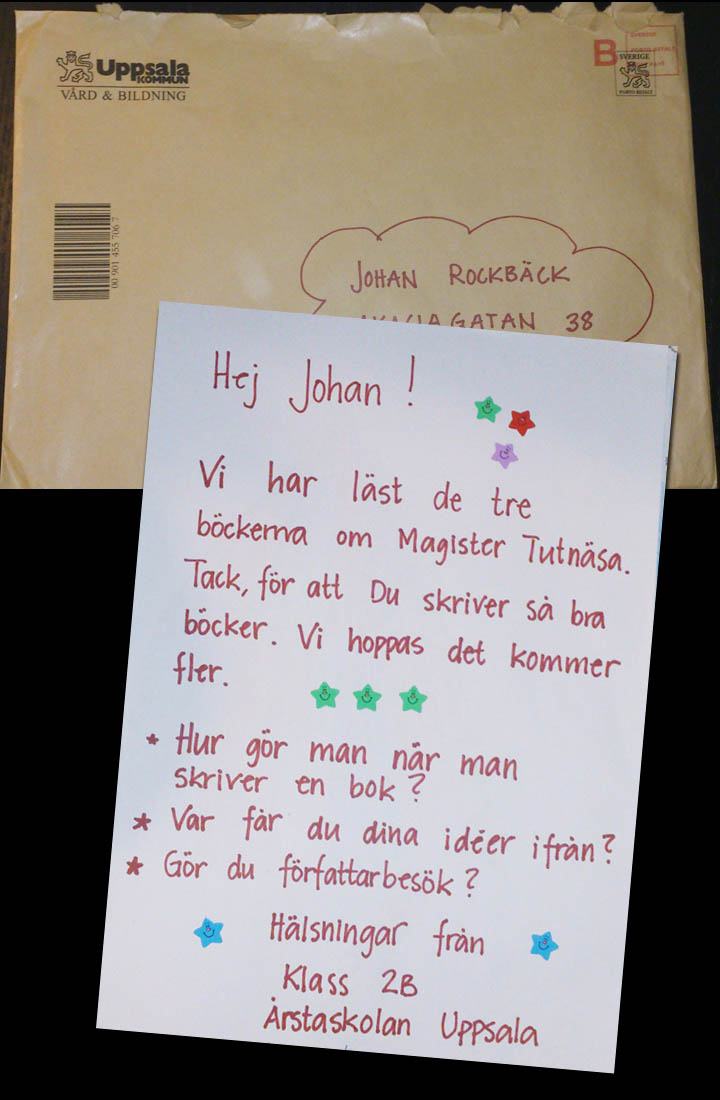 Uppsala
KOMMUN
VÅRD & BILDNING
B
SVERIGE
PORTO BETALT
SVERIGE
PORTO BETALT
00 901 455 706 7
JOHAN ROCKBÄCK
AKACIAGATAN 38
Hej Johan!
Vi har läst de tre
böckerna om Magister Tutnäsa.
Tack, för att Du skriver så bra
böcker. Vi hoppas det kommer
fler.
* Hur gör man när man
skriver en bok?
* Var får du dina idéer ifrån?
* Gör du författarbesök?
Hälsningar från
Klass 2B
Årstaskolan Uppsala